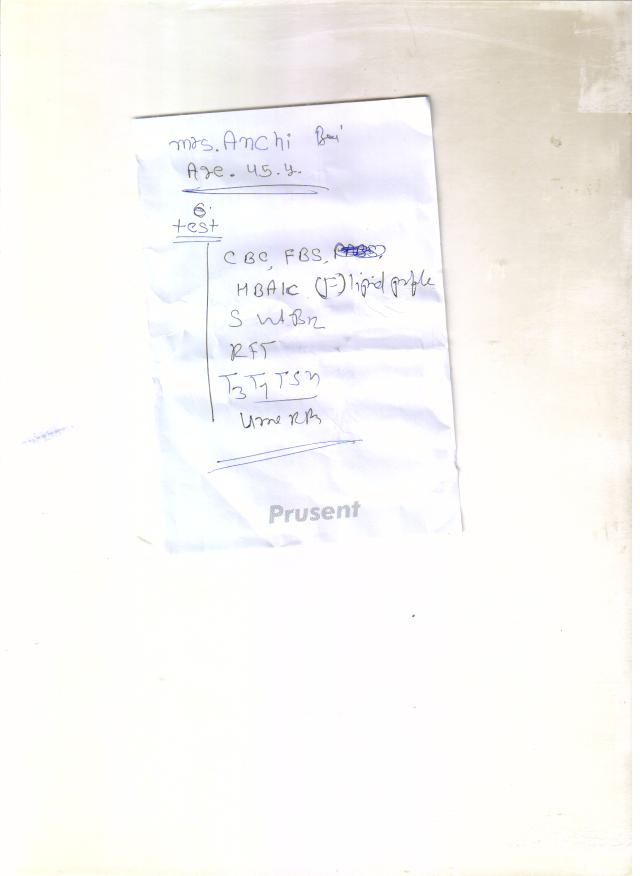 Mrs. Anchi Bai
Age. 45. y.
6
test
CBC, FBS,
HBA1C (F) lipid profile
S Vit B12
RFT
T3 T4 TSH
Urine R/M
Prusent